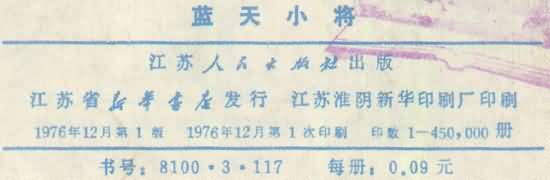 蓝天小将
江苏人民出版社出版
江苏省新华书店发行 江苏淮阴新华印刷厂印刷
1976年12月第1版 1976年12月第1次印刷 印数 1—450,000 册
书号：8100·3·117 每册：0.09元